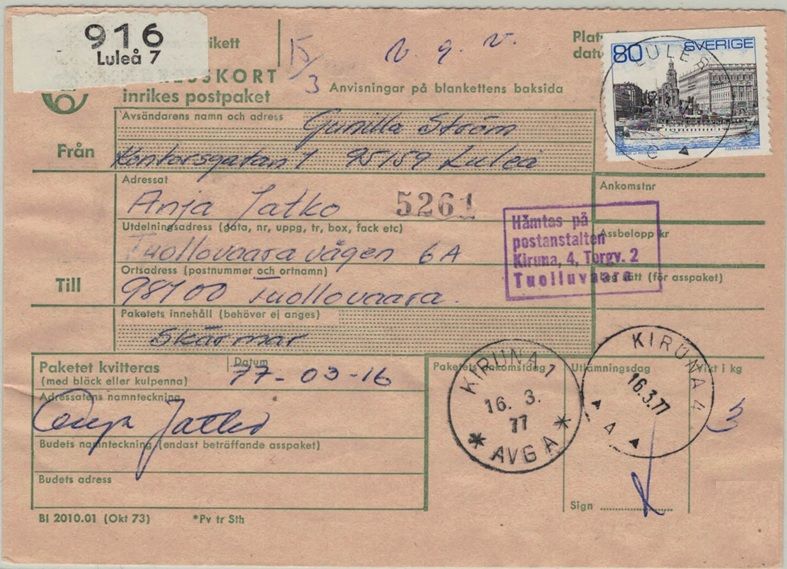 916
Luleå 7
15/3
v. g. v.
80 SVERIGE
SSKORT
inrikes postpaket
Anvisningar på blankettens baksida
Avsändarens namn och adress
Gunilla Ström
Från
Kontorsgatan 1 95159 Luleå
Adressat
Anja Jatko
5261
Ankomstnr
Utdelningsadress (gata, nr, uppg, tr, box, fack etc)
Tuollovaaravägen 6A
Hämtas på
postanstalten
Kiruna, 4, Torgv. 2
Tuolluvaara
Assbelopp kr
(för asspaket)
Till
Ortsadress (postnummer och ortnamn)
98100 Tuollovaara.
Paketets innehåll (behöver ej anges)
Skärmar
Paketet kvitteras
(med bläck eller kulpenna)
Datum
77-03-16
Paketets ankomstdag
Utlämningsdag
Vikt i kg
KIRUNA 1
16. 3.
77
* AVG A *
KIRUNA 4
16.3.77
A
3
Adressatens namnteckning
Anja Jatko
Budets namnteckning (endast beträffande asspaket)
Budets adress
Sign
Bl 2010.01 (Okt 73) *Pv tr Sth